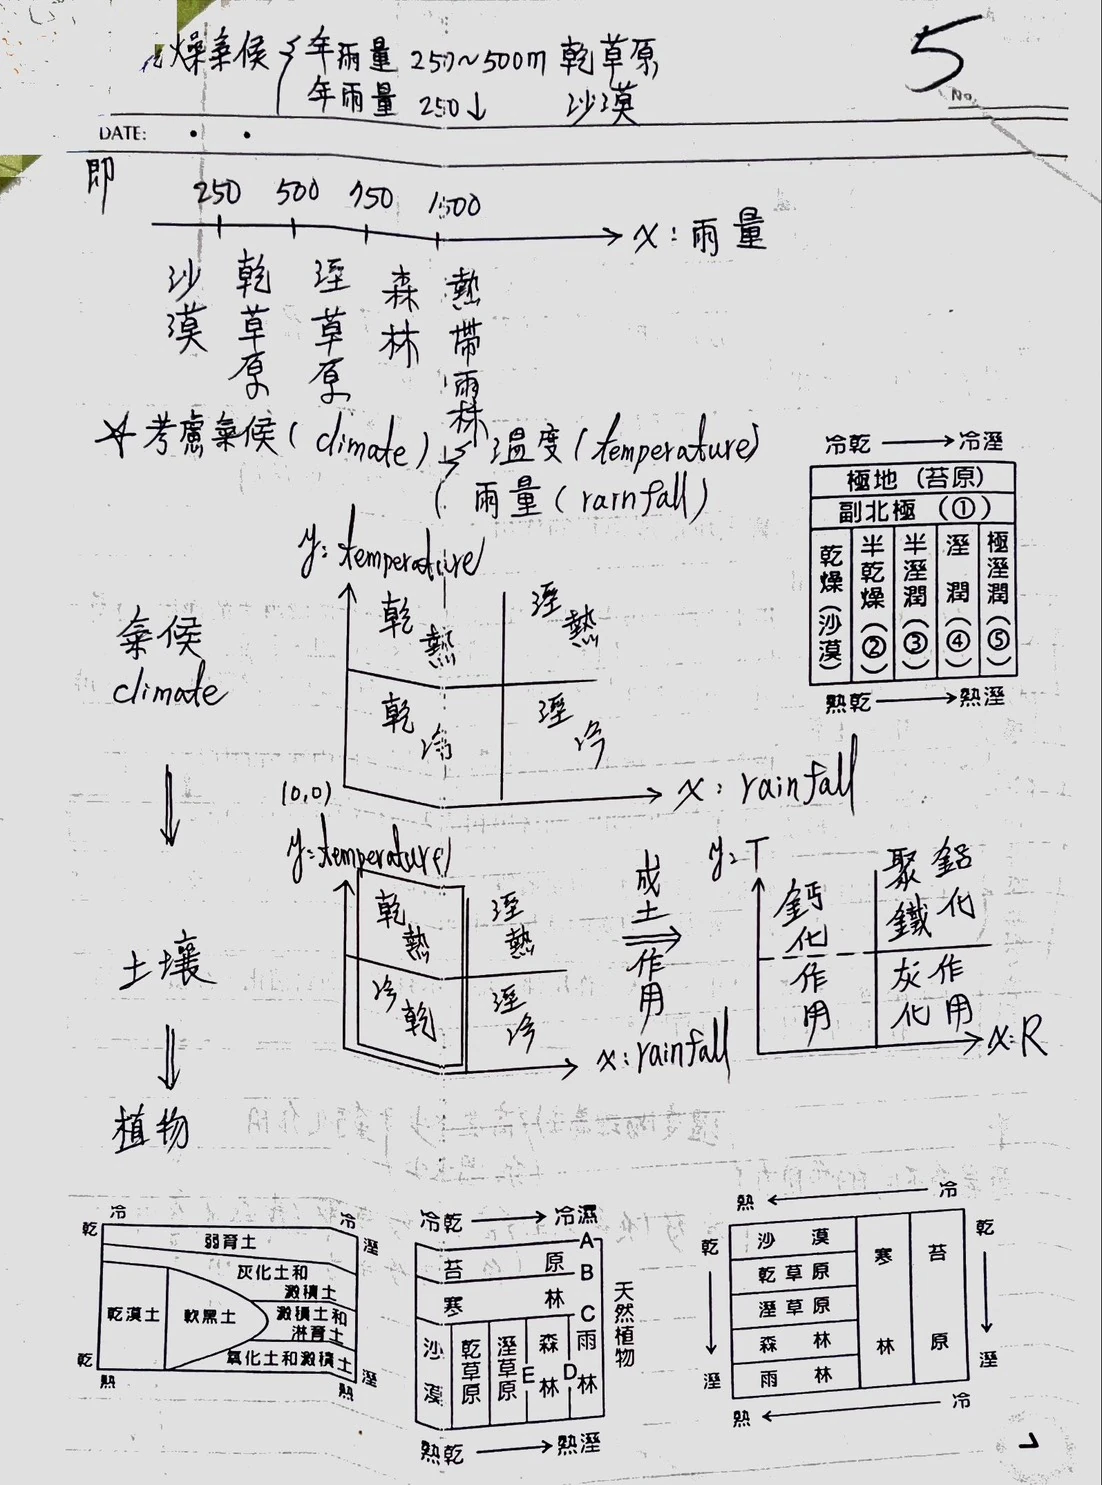 燥氣候 年雨量 250~500m 乾草原
年雨量 250↓ 沙漠
5
No.
DATE:
即
250 500 750 1500
x:雨量
沙漠 乾草原 溼草原 森林 熱帶雨林
☆考慮氣候(climate) 溫度(temperature)
雨量(rainfall)
冷乾→冷溼
極地(苔原)
副北極(①)
乾燥(沙漠) 半乾燥(②) 半溼潤(③) 溼潤(④) 極溼潤(⑤)
熱乾→熱溼
氣候
climate
y:temperature
乾熱 溼熱
乾冷 溼冷
(0,0)
x:rainfall
⇓
土壤
y:temperature
乾熱 溼熱
冷乾 溼冷
x:rainfall
成土作用
y:T
鈣化作用 聚鐵鋁化
灰化作用
x:R
⇓
植物
冷 冷
乾 溼
弱育土
灰化土和
澱積土
乾漠土 軟黑土 澱積土和
淋育土
氧化土和澱積土
乾 溼
熱 熱
冷乾→冷濕
A
苔原
B
寒林
C
沙漠 乾草原 溼草原 E 森林 D 雨林
熱乾→熱溼
天然植物
熱←冷
乾→溼
沙漠
乾草原
溼草原
森林
雨林
寒林
苔原
乾→溼
熱←冷